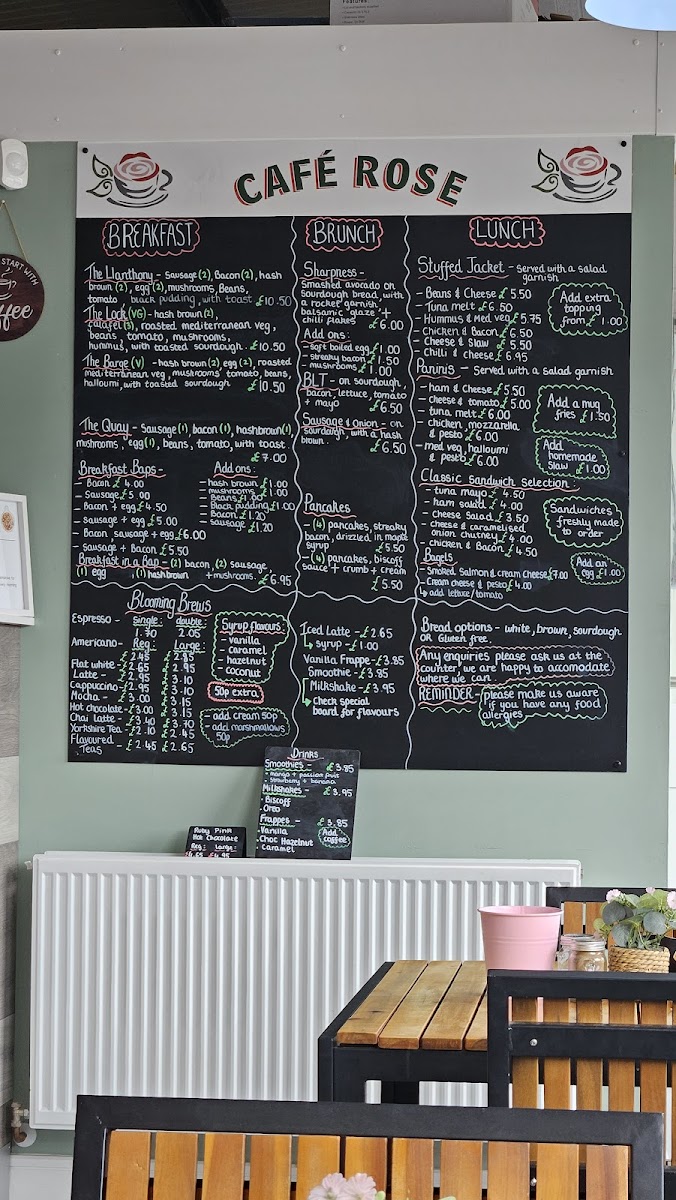 Features:
START WITH
ffee
CAFÉ ROSE
BREAKFAST
The Llanthony - Sausage (2), Bacon (2), hash
brown (2), egg (2), mushrooms, Beans,
tomato black pudding, with toast £10.50
The Lock (VG) - hash brown (2),
falafel (3), roasted mediterranean veg,
beans, tomato, mushrooms,
hummus, with toasted sourdough. £10.50
The Barge (V) - hash brown (2) egg (2), roasted
mediterranean veg, mushrooms tomato, beans,
halloumi, with toasted sourdough £10.50
The Quay - Sausage (1) bacon (1), hashbrown (1),
mushrooms, egg (1), beans, tomato, with toast.
£7.00
Breakfast Baps -
- Bacon £4.00
- Sausage £5.00
- Bacon + egg £4.50
- Sausage + egg £5.00
- Bacon sausage + egg £6.00
- Sausage + Bacon £5.50
Add ons:
- hash brown £1.00
- mushrooms £1.00
- Beans £1.00
- Black pudding £1.00
- Bacon £1.20
- sausage £1.20
Breakfast in a Bap - (2) bacon (2) sausage,
(1) egg (1) hashbrown + mushrooms. £6.95
BRUNCH
Sharpness -
Smashed avocado on
sourdough bread, with
a rocket garnish
balsamic glaze +
chilli flakes £6.00
Add ons:
- soft boiled egg £1.00
- streaky bacon £1.50
- mushrooms £1.00
BLT - on sourdough,
bacon, lettuce, tomato
+ mayo £6.50
Sausage & onion - on
sourdough, with a hash
brown. £6.50
Pancakes
- (4) pancakes, streaky
bacon, drizzled in maple
syrup £5.50
- (4) pancakes, biscoff
sauce + crumb + cream
£5.50
LUNCH
Stuffed Jacket - served with a salad
garnish
- Beans & Cheese £5.50
- Tuna melt £6.50
- Hummus & Med veg £5.75
- Chicken & Bacon £6.50
- Cheese & Slaw £5.50
- Chilli & cheese £6.95
Add extra
topping
from £1.00
Paninis - Served with a salad garnish
- ham & Cheese £5.50
- cheese & tomato £5.00
- tuna melt £6.00
- chicken, mozzarella
& pesto £6.00
- med veg, halloumi
& pesto £6.00
Add a mug
fries £1.50
Add
homemade
slaw £1.00
Classic sandwich selection:
- tuna mayo £4.50
- ham salad £4.00
- Cheese Salad £3.50
- cheese & caramelised
onion chutney £4.00
- chicken & Bacon £4.50
Sandwiches
freshly made
to order
Bagels
- Smoked Salmon & cream Cheese £7.00
- Cream cheese & pesto £4.00
↳ add lettuce/tomato
Add an
egg £1.00
Blooming Brews
Espresso - single: double:
1.70 2.05
Americano - Reg: Large:
£2.45 £2.85
Flat white - £2.65 £2.95
Latte - £2.95 £3.10
Cappuccino - £2.95 £3.10
Mocha - £3.00 £3.15
Hot chocolate - £3.00 £3.15
Chai latte - £3.40 £3.70
Yorkshire Tea - £2.10 £2.45
Flavoured
Teas - £2.45 £2.65
Syrup flavours:
- vanilla
- caramel
- hazelnut
- coconut
50p extra
- add cream 50p
- add marshmallows
50p
Iced Latte - £2.65
↳ syrup - £1.00
Vanilla Frappe - £3.85
Smoothie - £3.85
Milkshake - £3.95
↳ Check special
board for flavours
Bread options - white, brown, sourdough
OR Gluten free.
Any enquiries please ask us at the
counter, we are happy to accomodate
where we can.
REMINDER - please make us aware
if you have any food
allergies
Drinks
Smoothies - £3.85
- mango + passion fruit
- strawberry + banana
Milkshakes - £3.95
- Biscoff
- Oreo
Frappes - £3.85
- Vanilla
- Choc Hazelnut
- Caramel
Add
coffee
Ruby Pink
Hot Chocolate
Reg: Large:
£4.65 £4.95